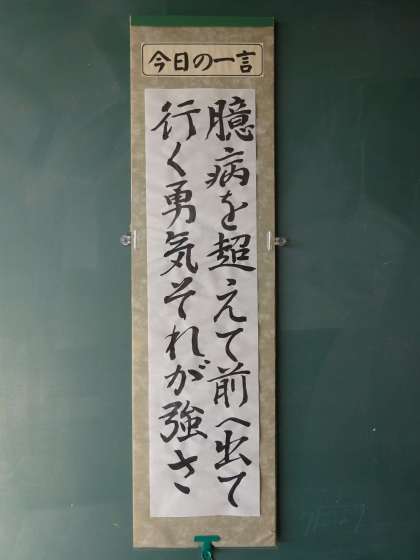 今日の一言
臆病を超えて前へ出て
行く勇気それが強さ